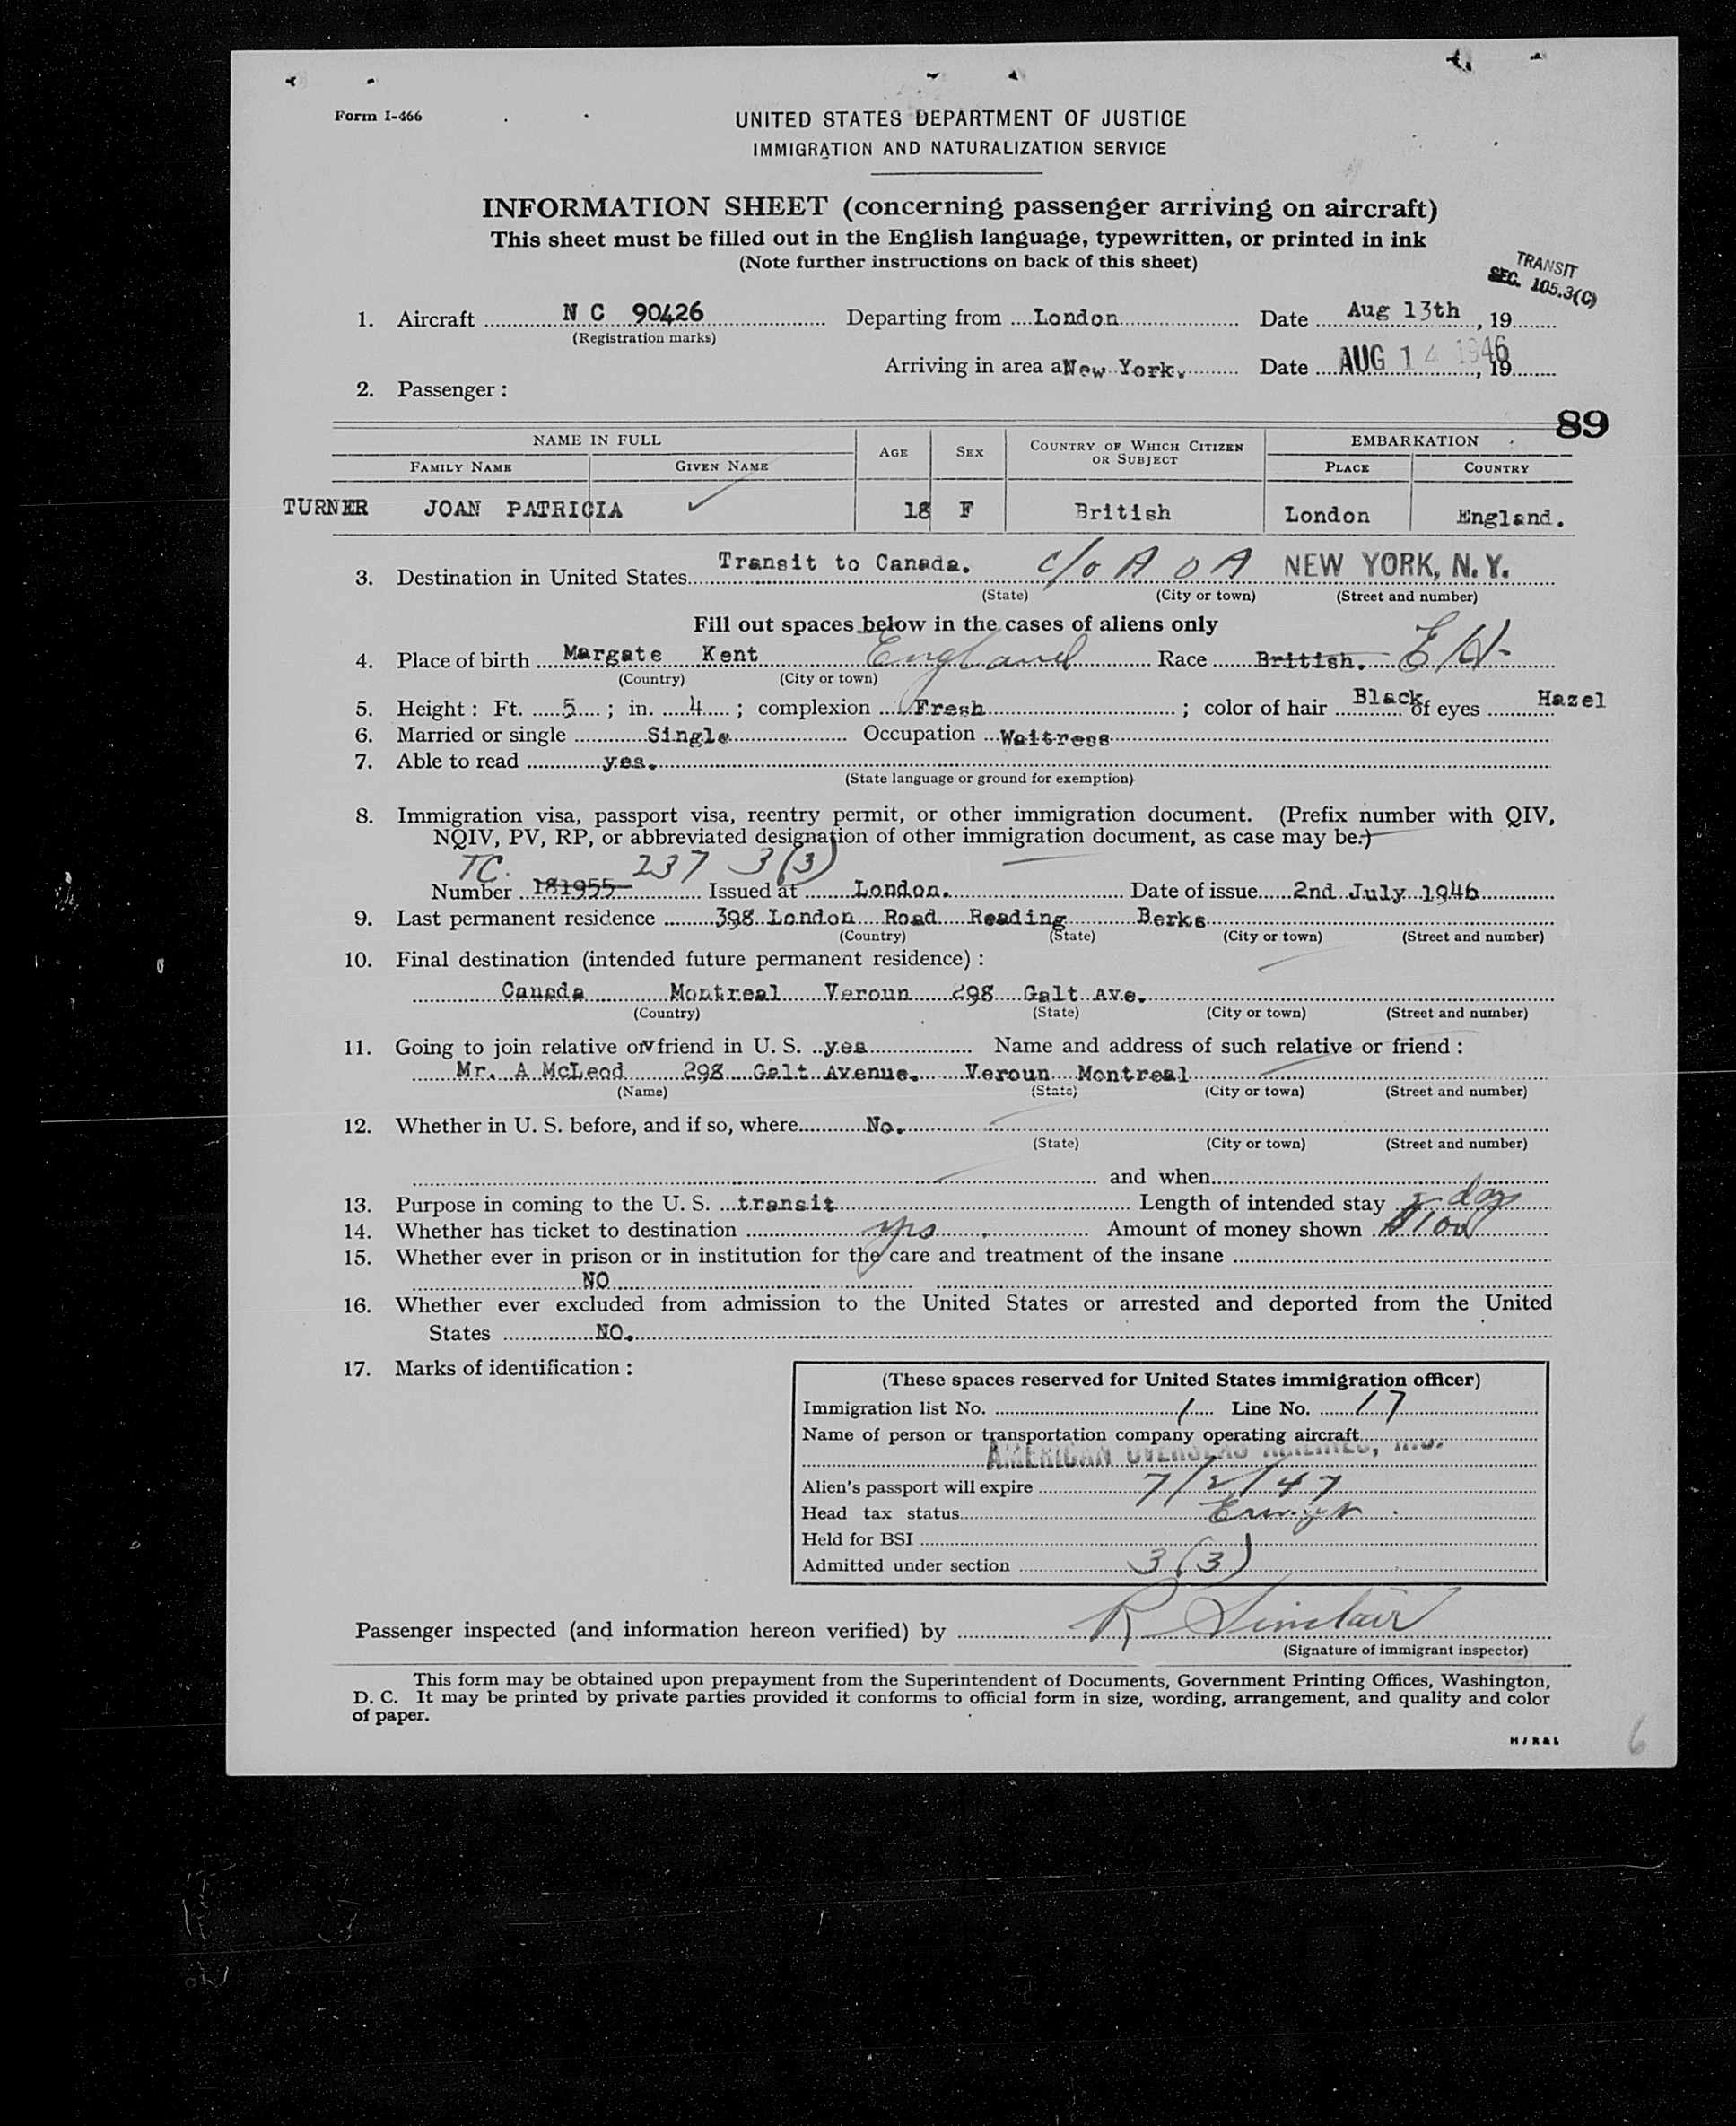 Form I-466
UNITED STATES DEPARTMENT OF JUSTICE
IMMIGRATION AND NATURALIZATION SERVICE
INFORMATION SHEET (concerning passenger arriving on aircraft)
This sheet must be filled out in the English language, typewritten, or printed in ink
(Note further instructions on back of this sheet)
TRANSIT
SEC. 105.3(C)
1. Aircraft N C 90426 Departing from London Date Aug 13th, 19
(Registration marks)
Arriving in area a New York. Date AUG 14 1946, 19
2. Passenger :
89
NAME IN FULL AGE SEX COUNTRY OF WHICH CITIZEN OR SUBJECT EMBARKATION
FAMILY NAME GIVEN NAME PLACE COUNTRY
TURNER JOAN PATRICIA 18 F British London England.
3. Destination in United States Transit to Canada. c/o A O A NEW YORK, N.Y.
(State) (City or town) (Street and number)
Fill out spaces below in the cases of aliens only
4. Place of birth Margate Kent England Race British.
(Country) (City or town)
5. Height : Ft. 5 ; in. 4 ; complexion Fresh ; color of hair Black of eyes Hazel
6. Married or single Single Occupation Waitress
7. Able to read yes.
(State language or ground for exemption)
8. Immigration visa, passport visa, reentry permit, or other immigration document. (Prefix number with QIV,
NQIV, PV, RP, or abbreviated designation of other immigration document, as case may be.)
TC. 237 3(3)
Number 181955 Issued at London. Date of issue 2nd July 1946
9. Last permanent residence 398 London Road Reading Berks
(Country) (State) (City or town) (Street and number)
10. Final destination (intended future permanent residence) :
Canada Montreal Veroun 298 Galt Ave.
(Country) (State) (City or town) (Street and number)
11. Going to join relative or friend in U. S. yes Name and address of such relative or friend :
Mr. A McLeod 298 Galt Avenue. Veroun Montreal
(Name) (State) (City or town) (Street and number)
12. Whether in U. S. before, and if so, where No.
(State) (City or town) (Street and number)
and when
13. Purpose in coming to the U. S. transit Length of intended stay day
14. Whether has ticket to destination yes Amount of money shown
15. Whether ever in prison or in institution for the care and treatment of the insane
NO
16. Whether ever excluded from admission to the United States or arrested and deported from the United
States NO.
17. Marks of identification :
(These spaces reserved for United States immigration officer)
Immigration list No. 1 Line No. 17
Name of person or transportation company operating aircraft
AMERICAN OVERSEAS AIRLINES, INC.
Alien's passport will expire 7/2/47
Head tax status
Held for BSI
Admitted under section 3(3)
Passenger inspected (and information hereon verified) by R Sinclair
(Signature of immigrant inspector)
This form may be obtained upon prepayment from the Superintendent of Documents, Government Printing Offices, Washington,
D. C. It may be printed by private parties provided it conforms to official form in size, wording, arrangement, and quality and color
of paper.
H J R & L
6